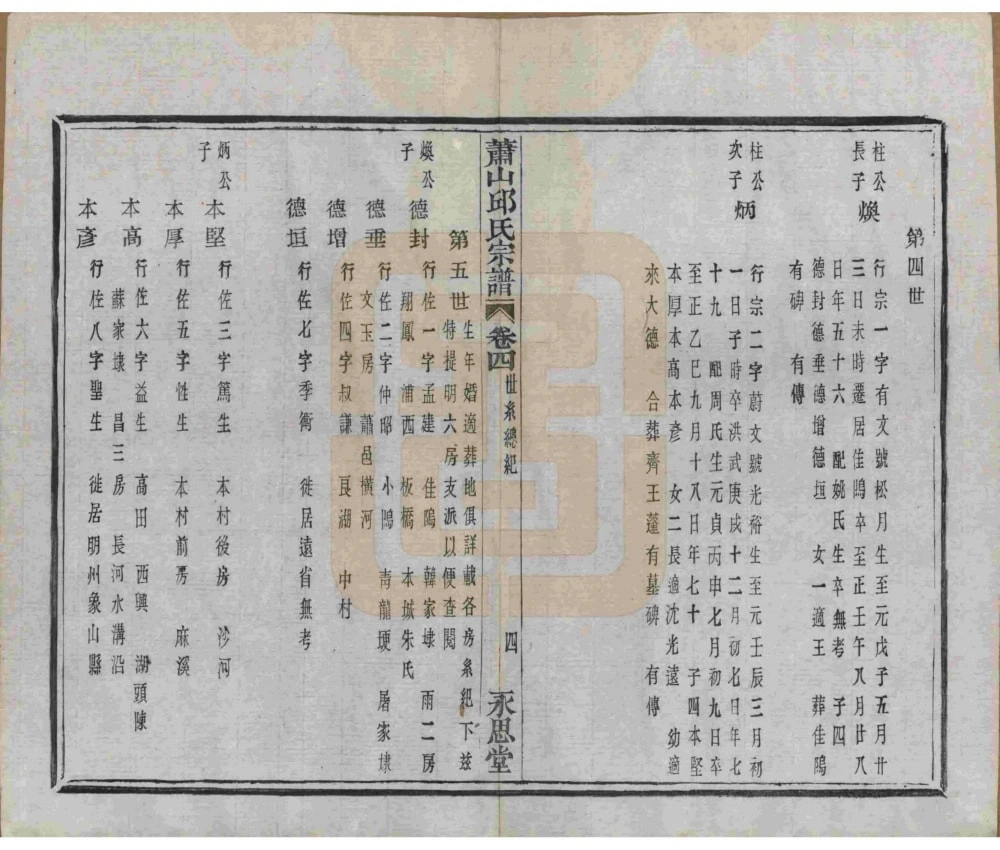 第四世
柱公
長子
煥
行宗一字有文號松月生至元戊子五月廿
三日未時遷居佳鳴卒至正壬午八月廿八
日年五十六　配姚氏生卒無考　子四
德封德垂德增德垣　女一適王　葬佳塢
有碑　有傳
柱公
次子
炳
行宗二字蔚文號光裕生至元壬辰三月初
一日子時卒洪武庚戌十二月初七日年七
十九　配周氏生元貞丙申七月初九日卒
至正乙巳九月十八日年七十　子四本堅
本厚本高本彥　女二長適沈光遠　幼適
來大德　合葬齊王蓬有墓碑　有傳
蕭山邱氏宗譜
卷四
世系總紀
四
永思堂
第五世
生年婚適葬地俱詳載各房系紀下茲
特提明六房支派以便查閱
煥公
子
德封
行佐一字孟建　佳塢　韓家埭　雨二房
翔鳳　浦西　板橋　本城朱氏
德垂
行佐二字仲昭　小塢　青龍埂　屠家埭
文玉房　蕭邑橫河
德增
行佐四字叔謙　艮湖　中村
德垣
行佐七字季衡　徙居遠省無考
炳公
子
本堅
行佐三字篤生　本村後房　沙河
本厚
行佐五字性生　本村前房　麻溪
本高
行佐六字益生　高田　西興　湖頭陳
蘇家埭　昌三房　長河水溝沿
本彥
行佐八字聖生　徙居明州象山縣